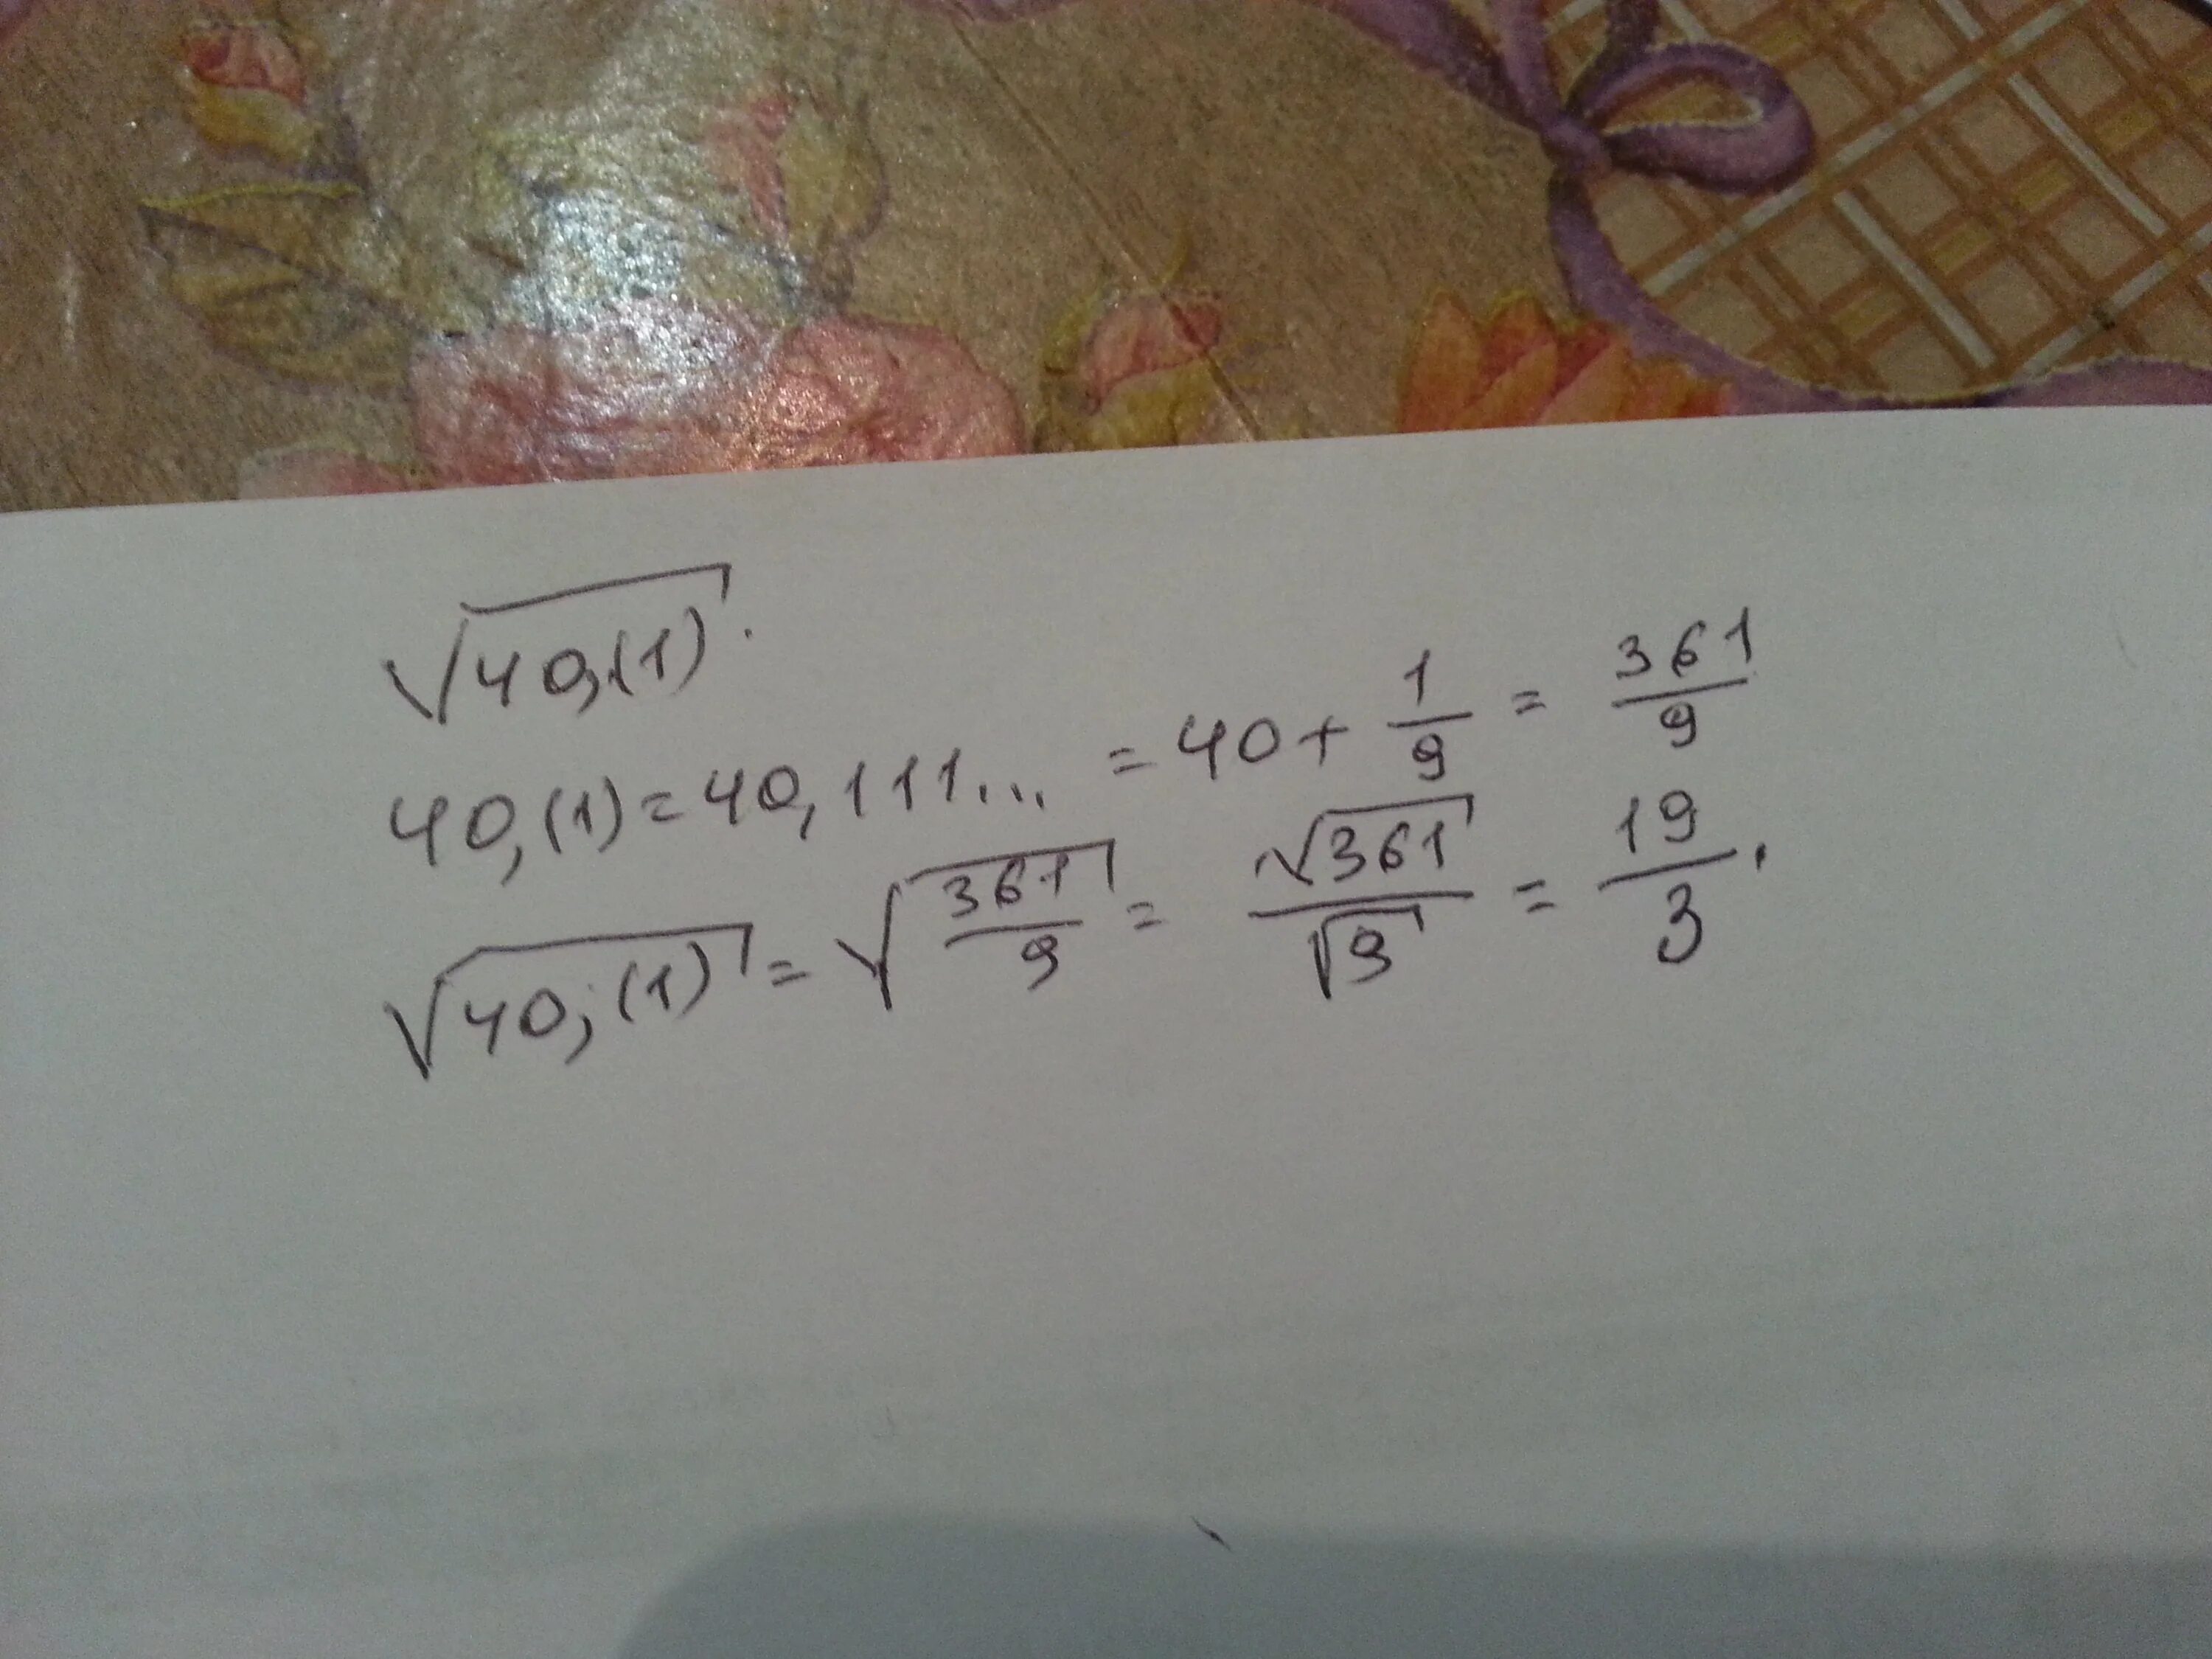 √40,(1).
40,(1) = 40,111... = 40 + 1/9 = 361/9
√40,(1) = √(361/9) = √361/√9 = 19/3.